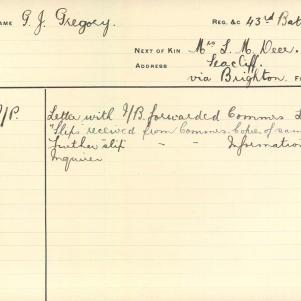 NAME G. J. Gregory. REG. &C 43rd Bat
NEXT OF KIN Mrs L. M. Deer.
ADDRESS Seacliff.
via Brighton.
/P. Letter with I/B forwarded Commrs
"Slips" received from Commrs. Copies of sam
Further slip - - Information
Inquirer